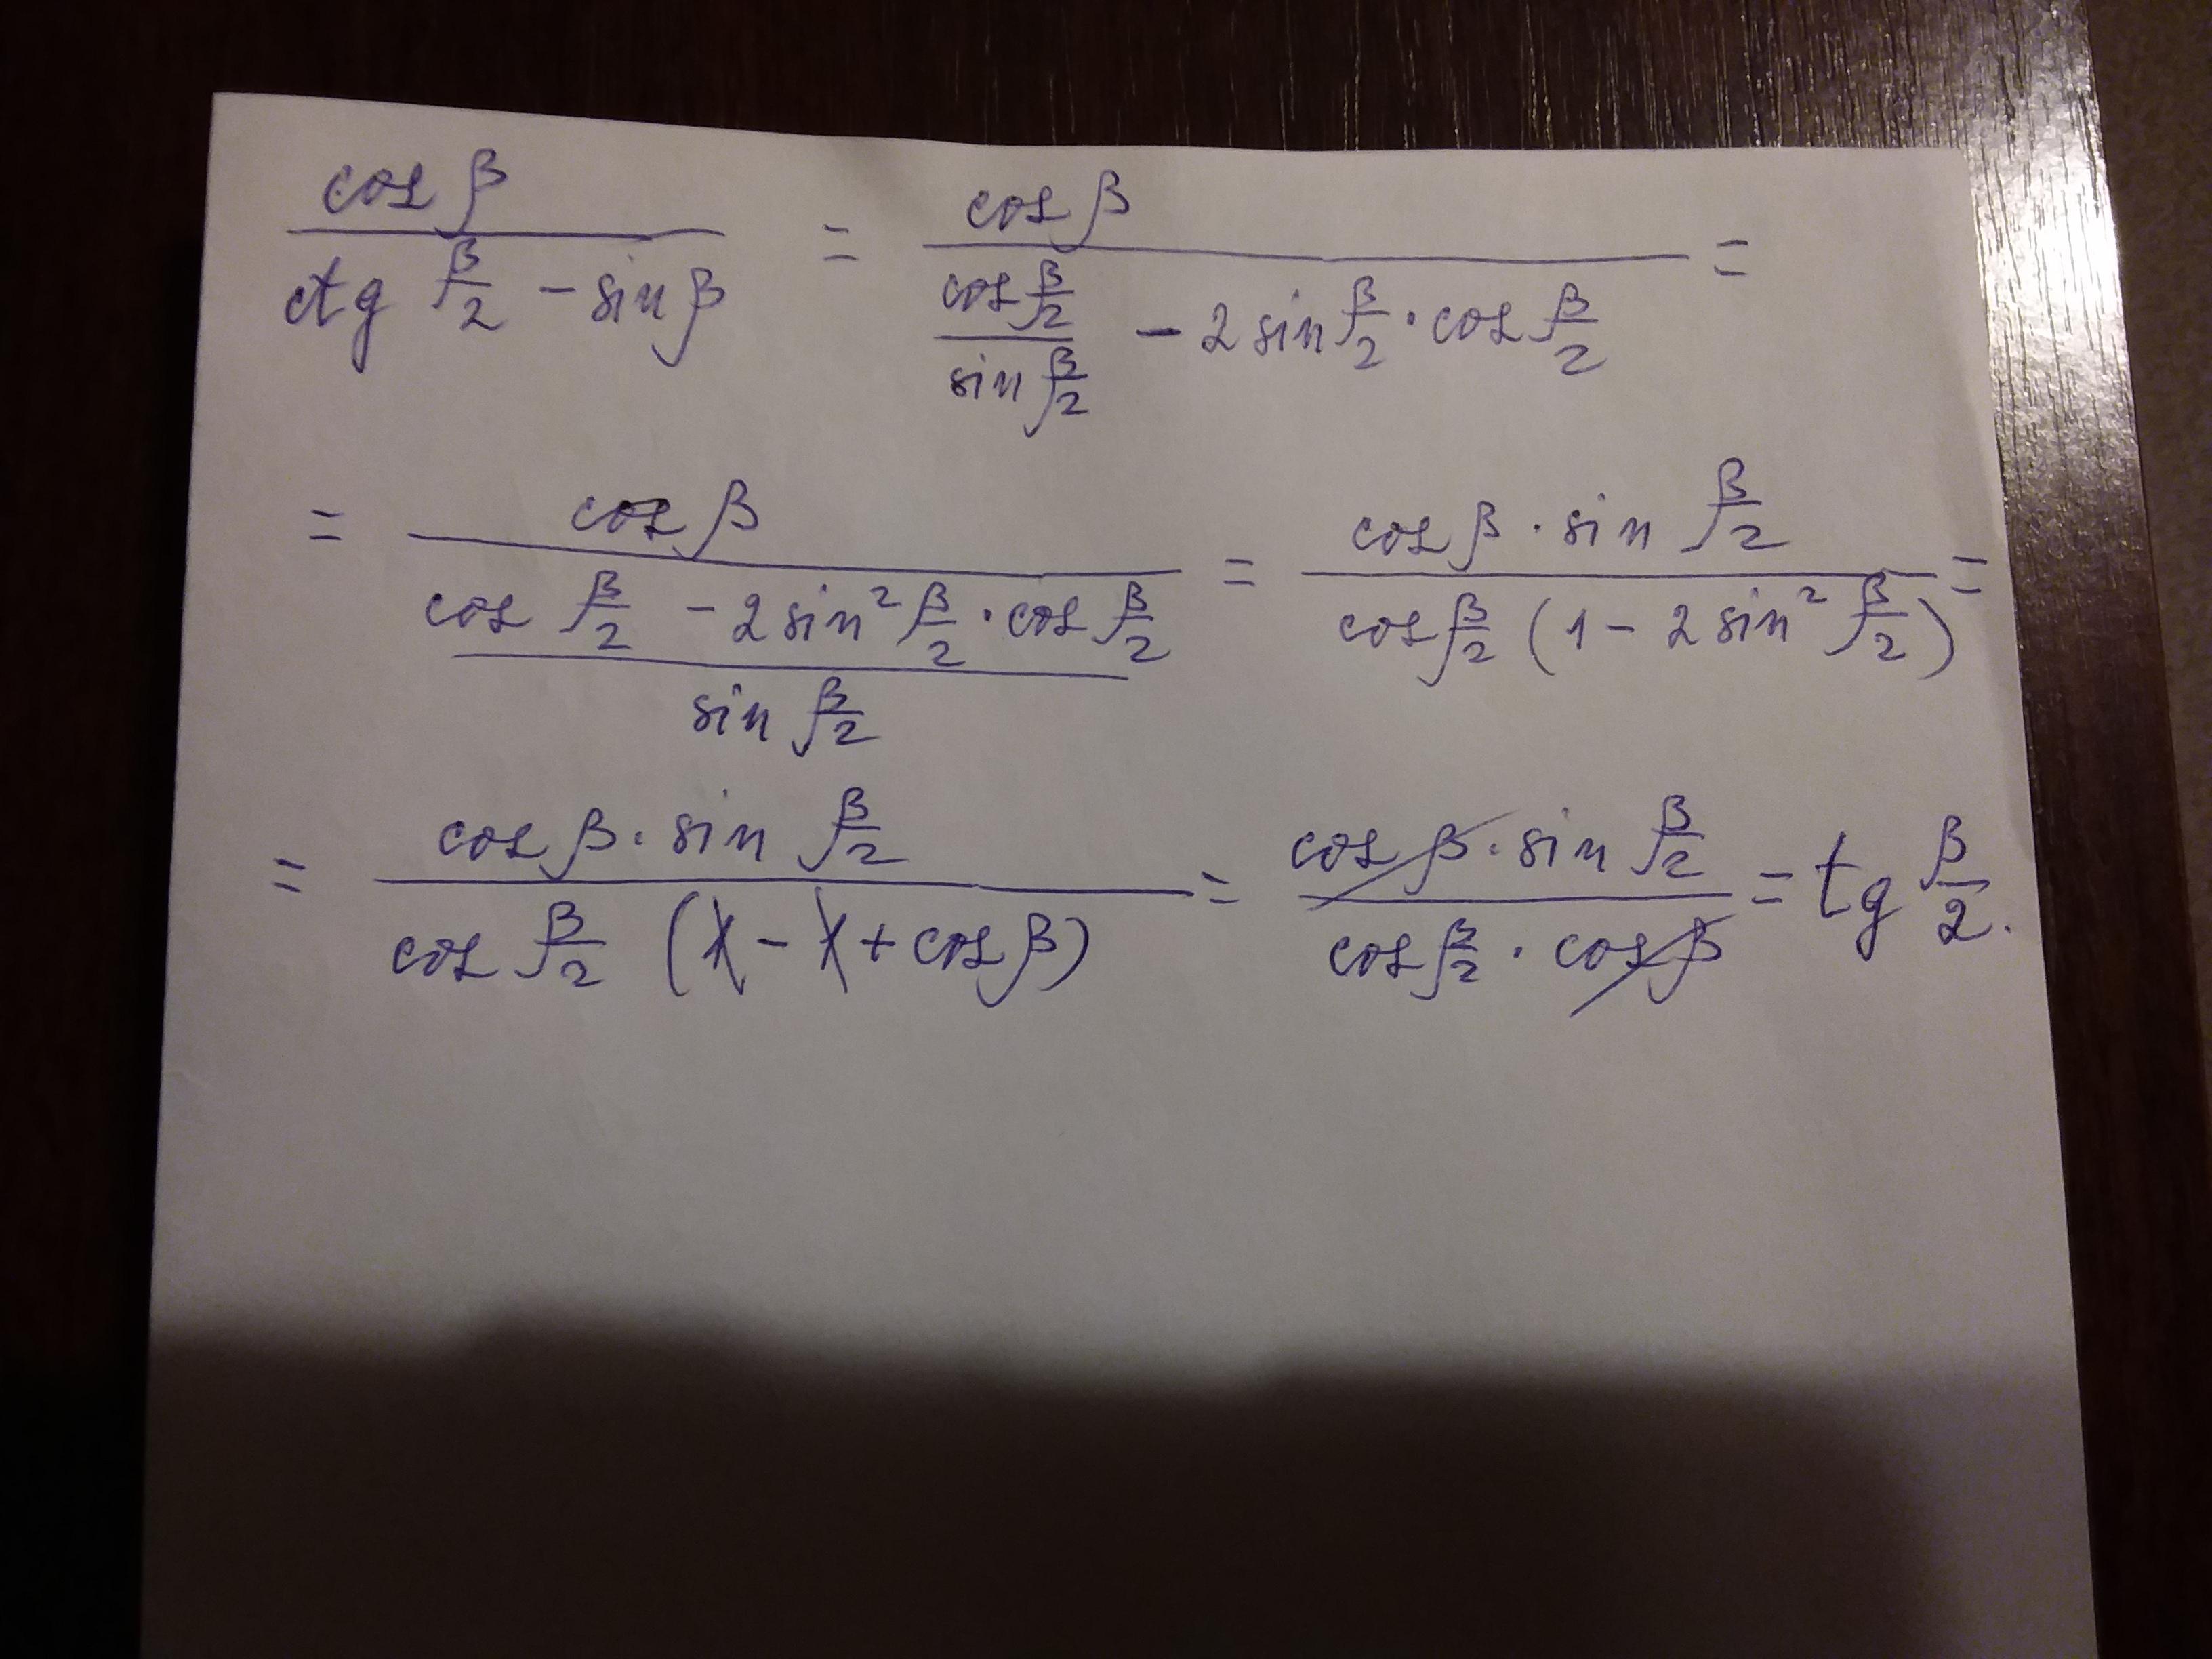 cos β / (ctg β/2 - sin β) = cos β / ((cos β/2)/(sin β/2) - 2 sin β/2 · cos β/2) =
= cos β / ((cos β/2 - 2 sin² β/2 · cos β/2)/(sin β/2)) = (cos β · sin β/2) / (cos β/2 (1 - 2 sin² β/2)) =
= (cos β · sin β/2) / (cos β/2 (1 - 1 + cos β)) = (cos β · sin β/2) / (cos β/2 · cos β) = tg β/2.